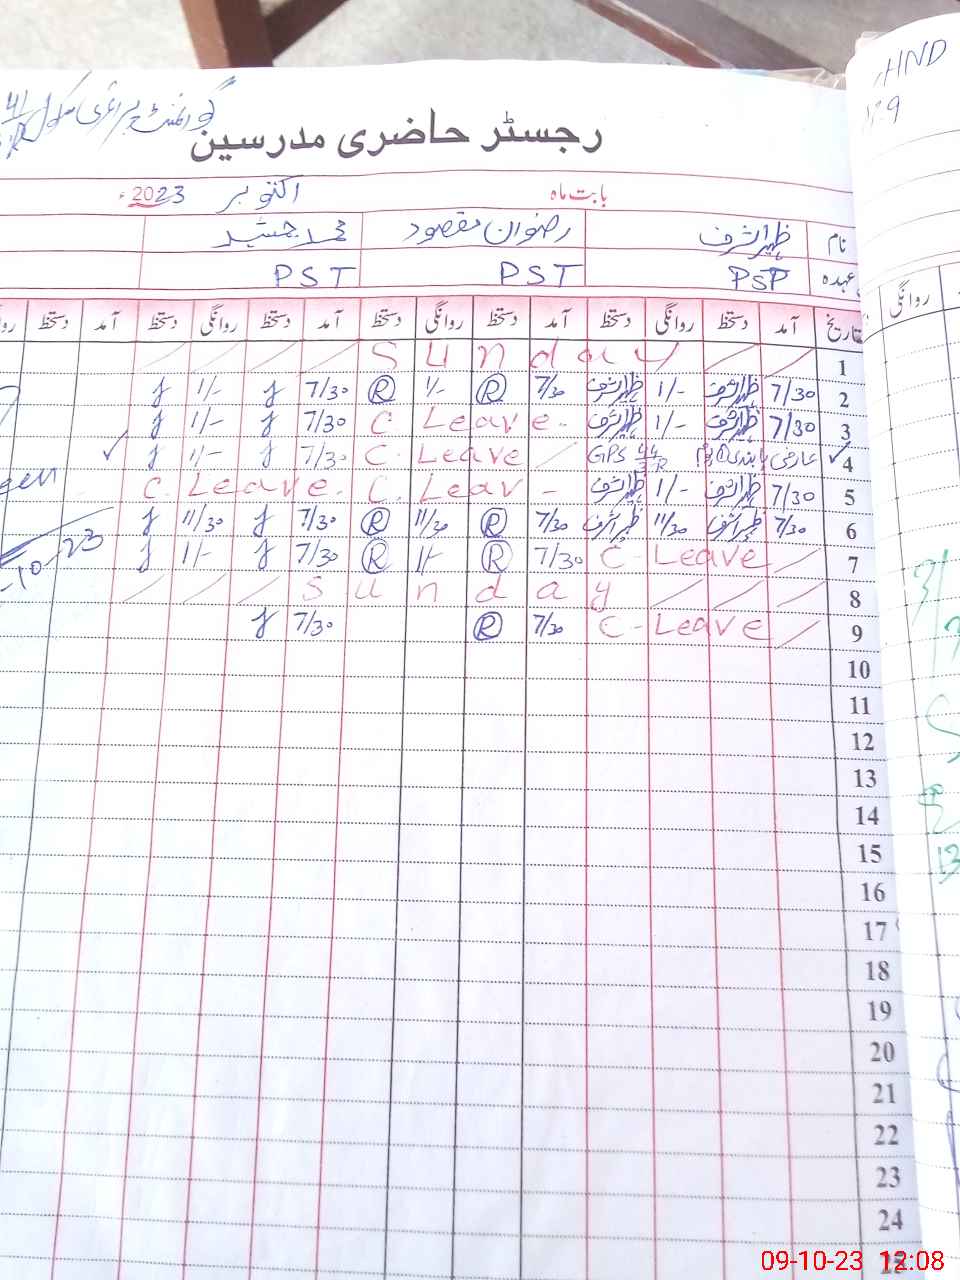 گورنمنٹ پرائمری سکول 41
رجسٹر حاضری مدرسین
بابت ماہ اکتوبر 2023ء
نام ظہیر اشرف رضوان مقصود محمد جمشید
عہدہ PST PST PST
تاریخ آمد دستخط روانگی دستخط آمد دستخط روانگی دستخط آمد دستخط روانگی دستخط آمد دستخط
1 Sunday
2 7/30 ظہیر اشرف 1/- ظہیر اشرف 7/30 R 1/- R 7/30 J 1/- J
3 7/30 ظہیر اشرف 1/- ظہیر اشرف C Leave 7/30 J 1/- J
4 عارضی پابندی GPS 44 C. Leave 7/30 J 1/- J
5 7/30 ظہیر اشرف 1/- ظہیر اشرف C. Leav C. Leave.
6 7/30 ظہیر اشرف 11/30 ظہیر اشرف 7/30 R 11/30 R 7/30 J 11/30 J
7 C-Leave 7/30 R 1/- R 7/30 J 1/- J
8 Sunday
9 C-Leave 7/30 R 7/30 J
10
11
12
13
14
15
16
17
18
19
20
21
22
23
24
25
HND
129
روانگی
09-10-23 12:08